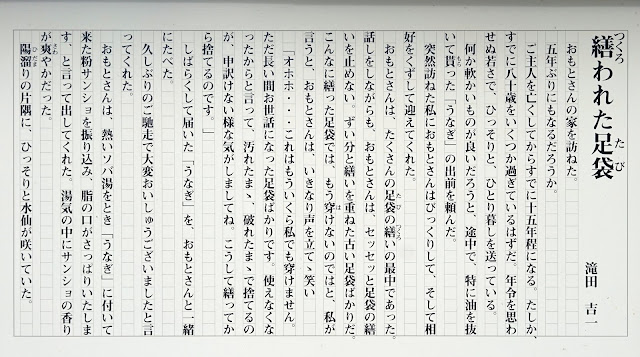 繕われた足袋
つくろ
たび
滝田 吉一
おもとさんの家を訪ねた。
五年ぶりにもなるだろうか。
ご主人を亡くしてからすでに十五年程になる。たしか、
すでに八十歳をいくつか過ぎているはずだ。年令を思わ
せぬ若さで、ひっそりと、ひとり暮しを送っている。
何か軟かいものが良いだろうと、途中で、特に油を抜
いて貰った「うなぎ」の出前を頼んだ。
もら
突然訪ねた私におもとさんはびっくりして、そして相
好をくずして迎えてくれた。
おもとさんは、たくさんの足袋の繕いの最中であった。
たび
つくろ
話しをしながらも、おもとさんは、セッセッと足袋の繕
いを止めない。ずい分と繕いを重ねた古い足袋ばかりだ。
こんなに繕った足袋では、もう穿けないのではと、私が
は
言うと、おもとさんは、いきなり声を立てゝ笑い
「オホホ・・・これはもういくら私でも穿けません。
ただ長い間お世話になった足袋ばかりです。使えなくな
ったからと言って、汚れたまゝ、破れたまゝで捨てるの
が、申訳けない様な気がしましてね。こうして繕ってか
ら捨てるのです。」
しばらくして届いた「うなぎ」を、おもとさんと一緒
にたべた。
久しぶりのご馳走で大変おいしゅうございましたと言
ってくれた。
おもとさんは、熱いソバ湯をとき「うなぎ」に付いて
来た粉サンショを振り込み、脂の口がさっぱりいたしま
す、と言って出してくれた。湯気の中にサンショの香り
が爽やかだった。
さわ
陽溜りの片隅に、ひっそりと水仙が咲いていた。
ひだま